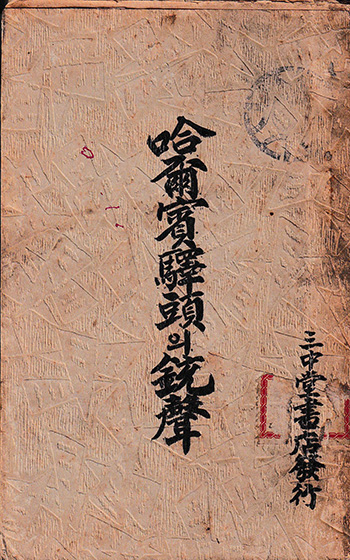 哈爾賓驛頭의銃聲
三中堂書店發行